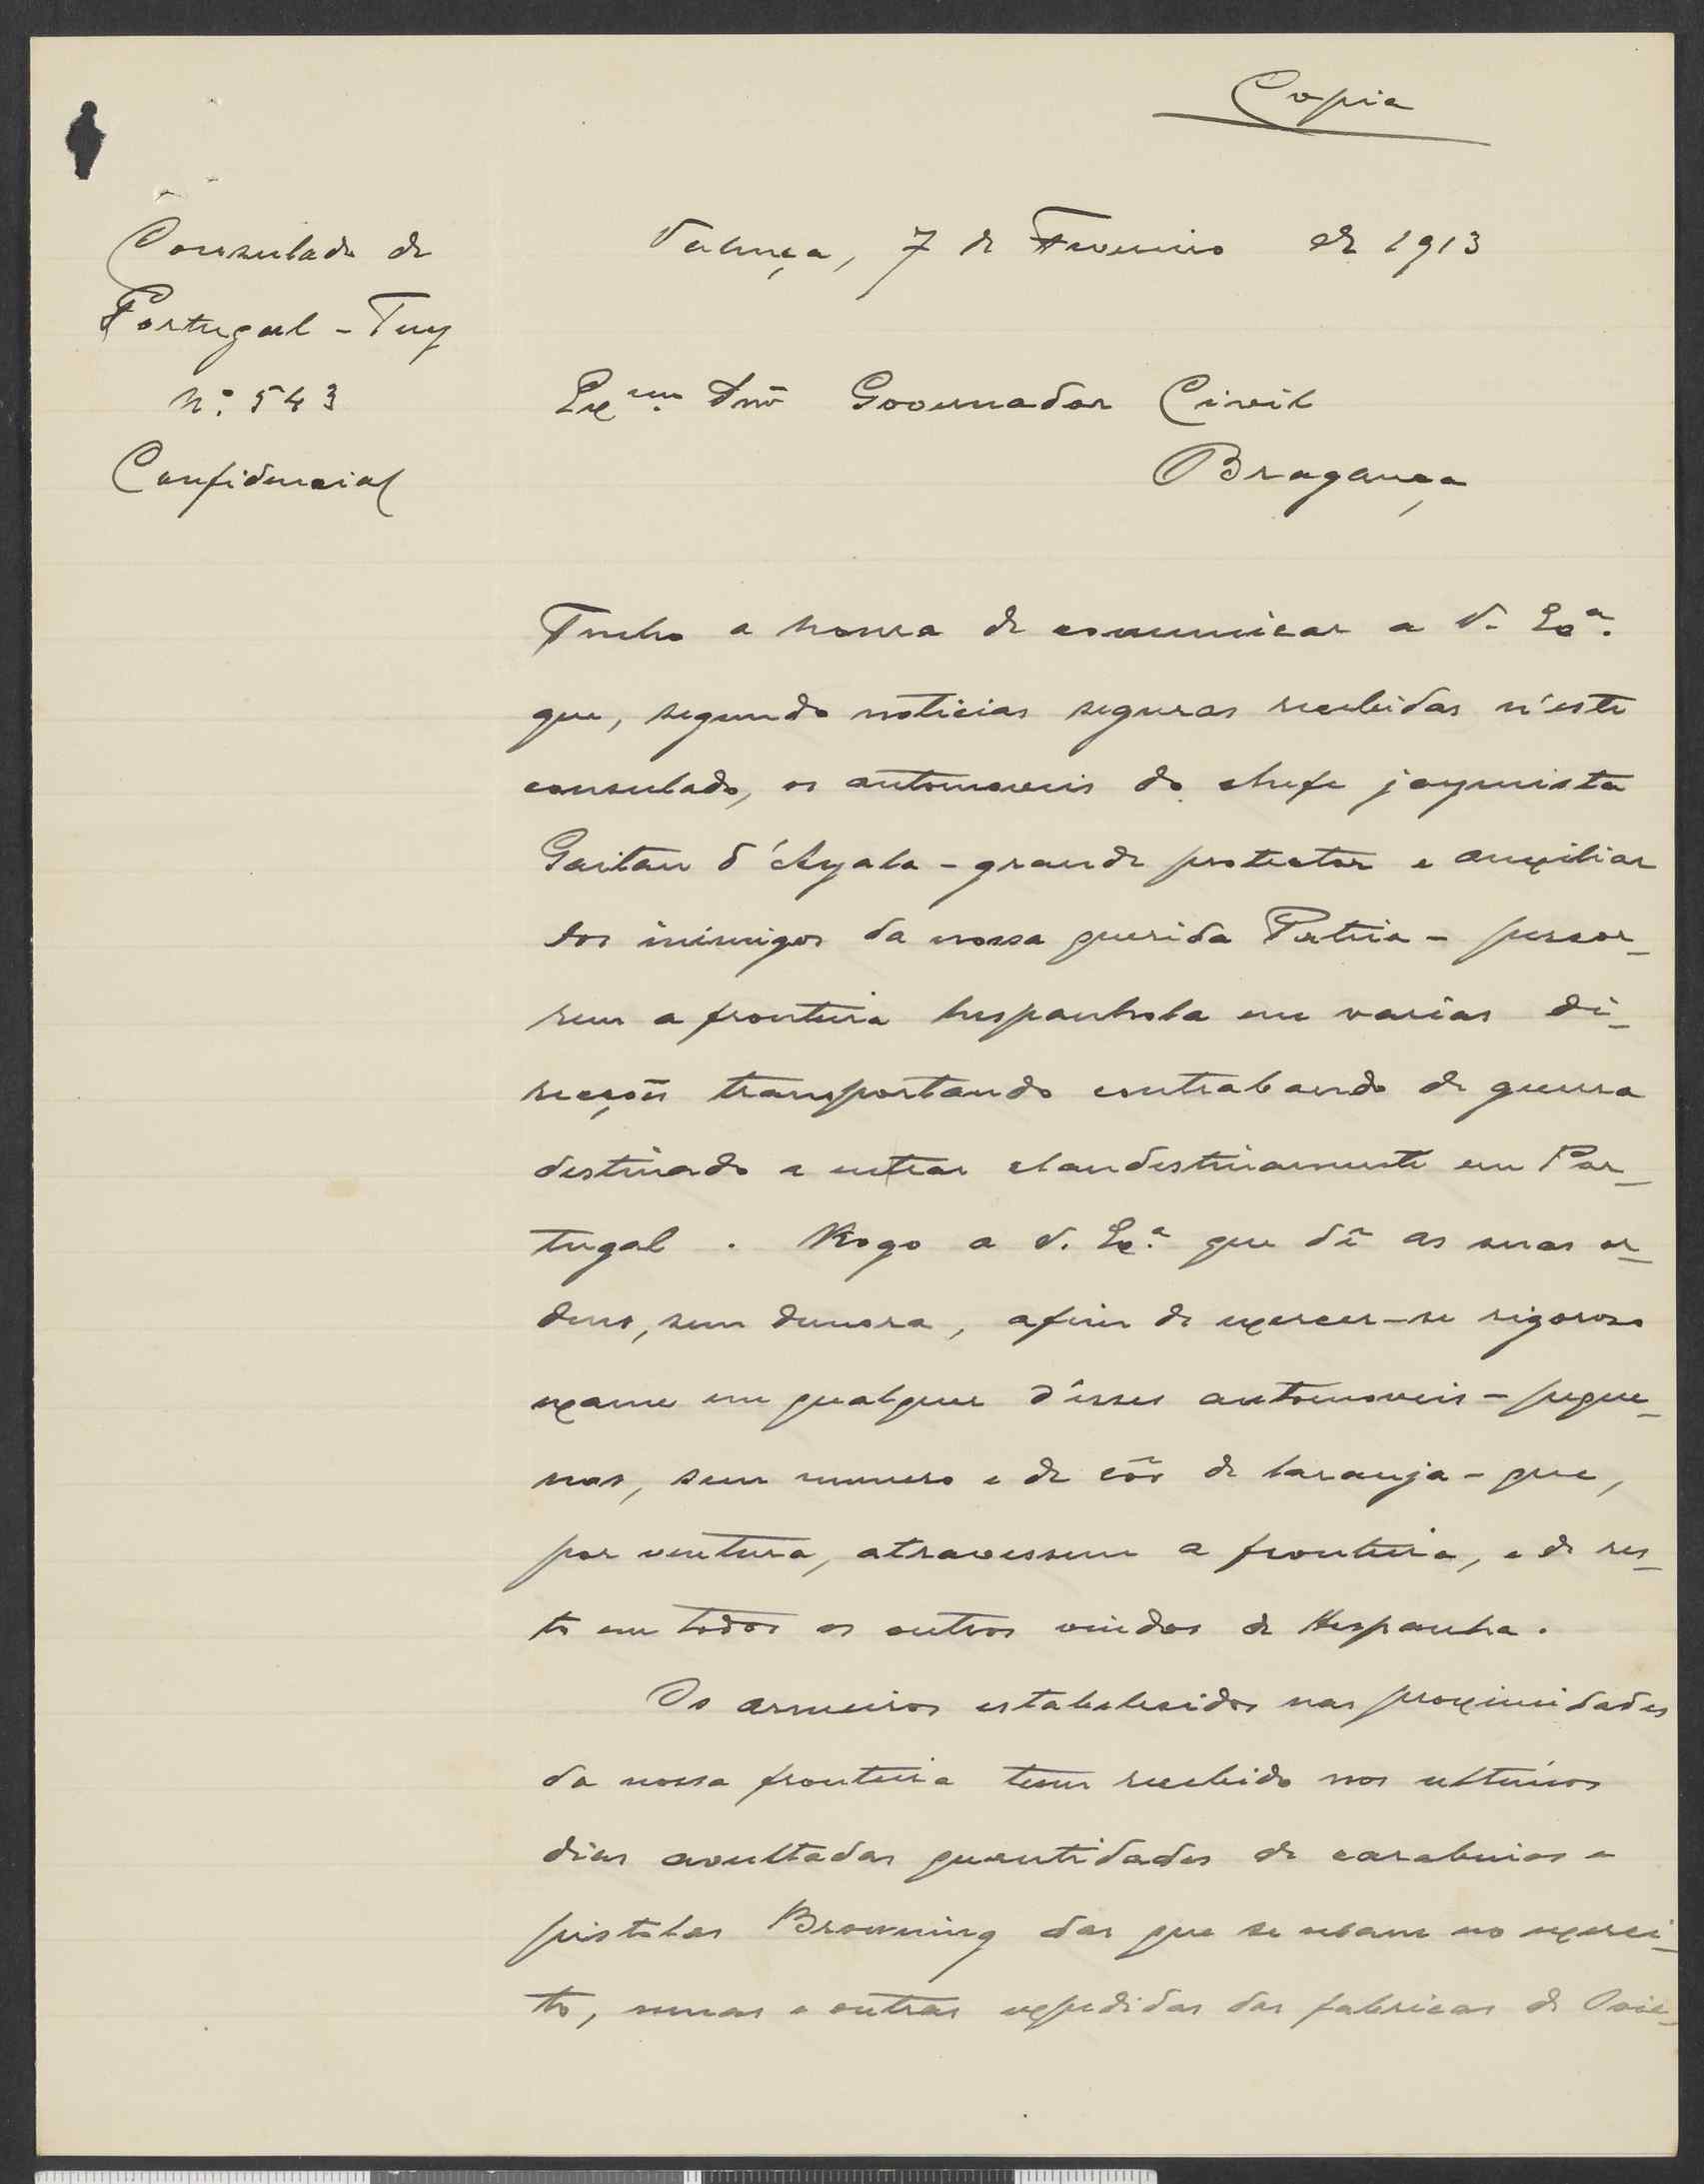 Copia
Consulado de
Portugal - Tuy
N.º 543
Confidencial
Valença, 7 de Fevereiro de 1913
Exmo. Snr Governador Civil
Bragança
Tenho a honra de comunicar a V. Exª.
que, segundo noticias seguras recebidas n'este
consulado, os automoveis do chefe jaymista
Gaitan d'Ayala - grande protector e auxiliar
dos inimigos da nossa querida Patria - percor-
rem a fronteira hespanhola em varias di-
recções transportando contrabando de guerra
destinado a entrar clandestinamente em Por-
tugal. Rogo a V. Exª. que dê as suas or-
dens, sem demora, afim de exercer-se rigoroso
exame em qualquer d'esses automoveis - peque-
nos, sem numero e de côr de laranja - que,
por ventura, atravessem a fronteira, e de res-
to em todos os outros vindos de Hespanha.
Os armeiros estabelecidos nas proximidades
da nossa fronteira teem recebido nos ultimos
dias avultadas quantidades de carabinas e
pistolas Browning das que se usam no exerci-
to, umas e outras expedidas das fabricas de Ovie-